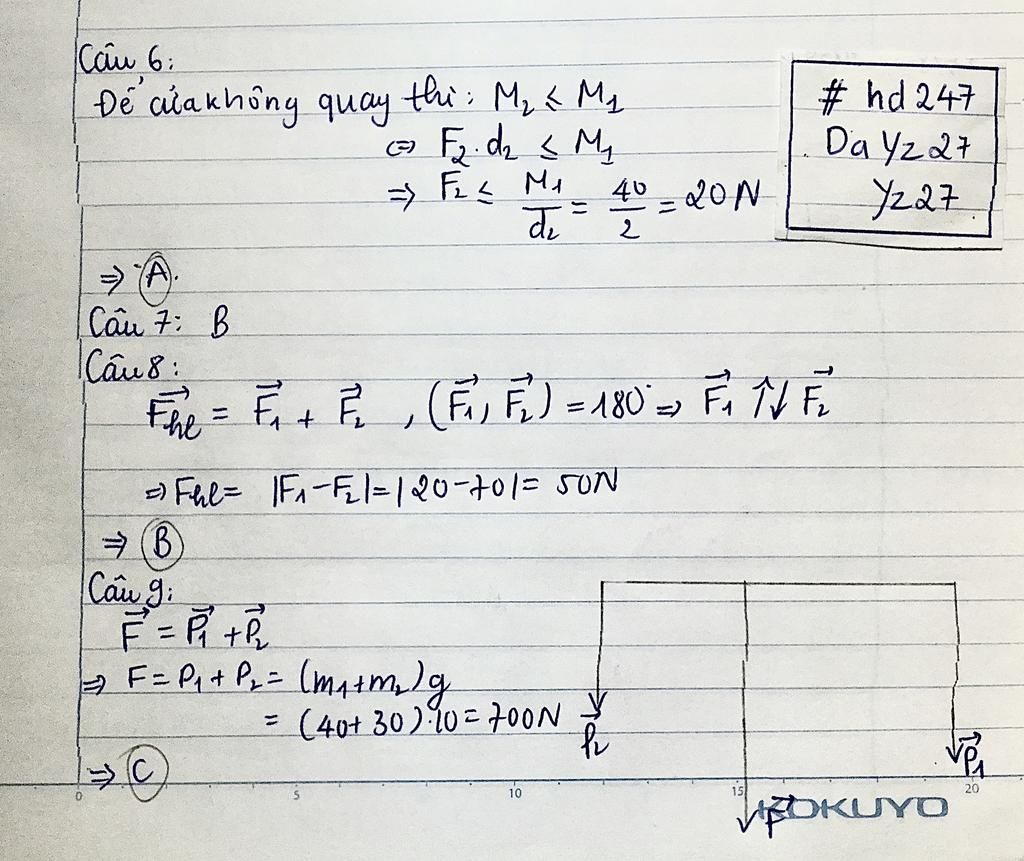 Câu 6:
Để cửa không quay thì: M₂ ≤ M₁
⇔ F₂.d₂ ≤ M₁
⇒ F₂ ≤ M₁/d₂ = 40/2 = 20N
# hd247
DaYz27
Yz27
⇒ A.
Câu 7: B
Câu 8:
F⃗hl = F⃗₁ + F⃗₂ , (F⃗₁, F⃗₂) = 180° ⇒ F⃗₁ ↑↓ F⃗₂
⇒ Fhl = |F₁-F₂| = |20-70| = 50N
⇒ B
Câu 9:
F⃗ = P⃗₁ + P⃗₂
⇒ F = P₁ + P₂ = (m₁+m₂)g
= (40+30).10 = 700N
P⃗₂
P⃗₁
⇒ C
0 5 10 15 20
F⃗
KOKUYO